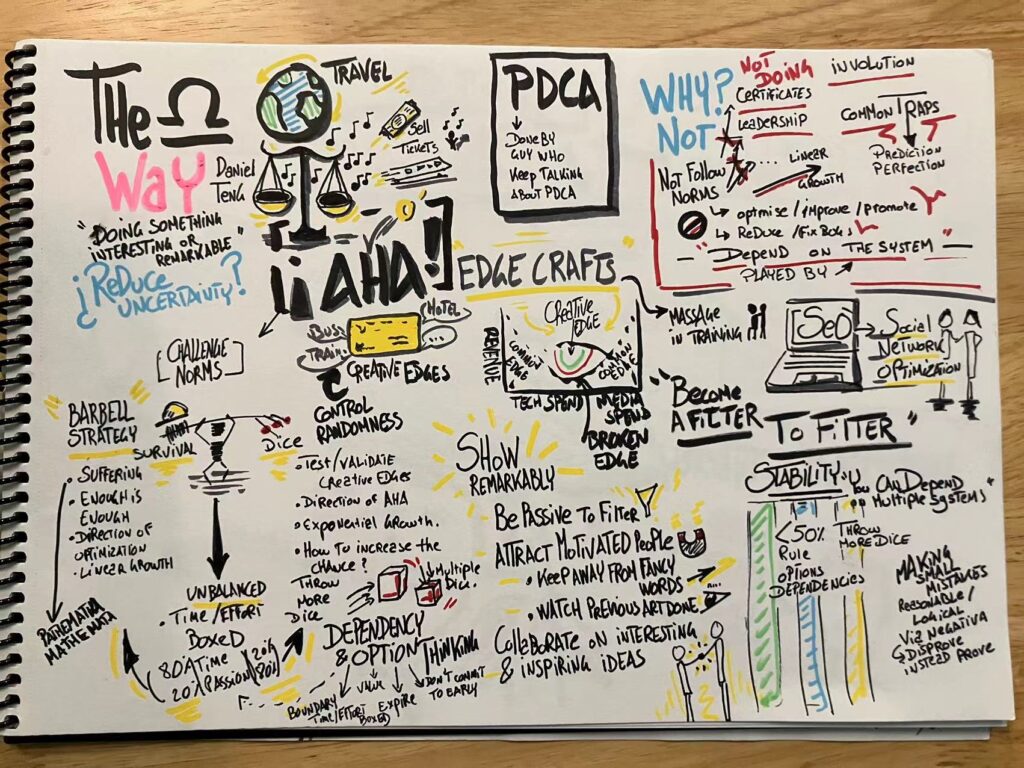 THE Ω
WAY
Daniel
TENG
"DOING SOMETHING
INTERESTING OR
REMARKABLE"
¿REDUCE
UNCERTAINTY?
TRAVEL
SELL
TICKETS
¡¡AHA!
CHALLENGE
NORMS
BUS
TRAIN
HOTEL
...
CREATIVE EDGES
CONTROL
RANDOMNESS
• Test/VALIDATE
CREATIVE EDGES
• DIRECTION OF AHA
• EXPONENTIAL GROWTH.
• HOW TO INCREASE THE
CHANCE?
THROW
MORE
DICE
MULTIPLE
DICE
BARBELL
STRATEGY
SURVIVAL
DICE
• SUFFERING
• ENOUGH IS
ENOUGH
• DIRECTION OF
OPTIMIZATION
• LINEAR GROWTH
PATHEMATHA
MATHEMATA
UNBALANCED
• TIME/EFFORT
BOXED
80% TIME
20% PASSION
20%
80%
DEPENDENCY
& OPTION
THINKING
BOUNDARY
TIME/EFFORT
BOXED
VALUE
EXPIRE
DON'T COMMIT
TO EARLY
PDCA
DONE BY
GUY WHO
KEEP TALKING
ABOUT PDCA
EDGE CRAFTS
CREATIVE
EDGE
REVENUE
COMMON
EDGE
TECH SPEND
MEDIA
SPEND
BROKEN
EDGE
SHOW
REMARKABLY
BE PASSIVE TO FILTER
ATTRACT MOTIVATED PEOPLE
• KEEP AWAY FROM FANCY
WORDS
• WATCH PREVIOUS ART DONE
COLLABORATE ON INTERESTING
& INSPIRING IDEAS
WHY?
NOT
NOT
DOING
CERTIFICATES
LEADERSHIP
INVOLUTION
COMMON TRAPS
PREDICTION
PERFECTION
NOT FOLLOW
NORMS
... LINEAR
GROWTH
OPTIMISE/IMPROVE/PROMOTE
REDUCE/FIX BUGS
"DEPEND ON THE SYSTEM"
PLAYED BY
MASSAGE
IN TRAINING
SEO
SOCIAL
NETWORK
OPTIMIZATION
"BECOME
A FILTER
TO FILTER"
STABILITY: "YOU CAN DEPEND
MULTIPLE SYSTEMS"
<50%
RULE
OPTIONS
DEPENDENCIES
THROW
MORE DICE
MAKING
SMALL
MISTAKES
REASONABLE/
LOGICAL
VIA NEGATIVA
DISPROVE
INSTEAD PROVE